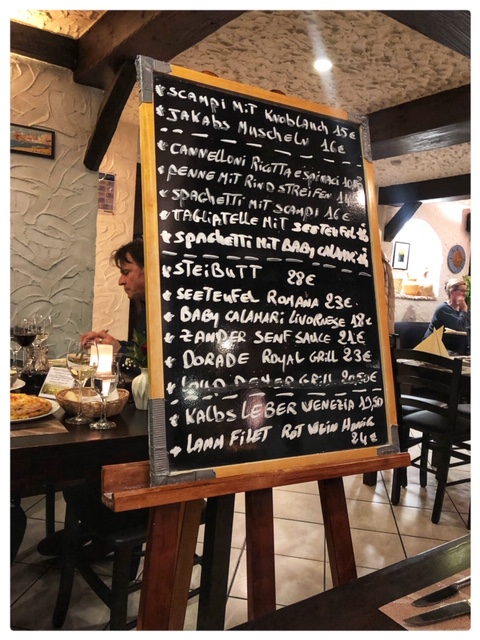 SCAMPI MIT KNOBLAUCH 15€
JAKOBS MUSCHELN 16€
CANNELLONI RICOTTA e SPINACI
PENNE MIT RIND STREIFEN
SPAGHETTI MIT SCAMPI 16€
TAGLIATELLE MIT SEETEUFEL
SPAGHETTI MIT BABY
STEIBUTT 28€
SEETEUFEL ROMANA 23€
BABY CALAMARI LIVORNESE 18€
ZANDER SENF SAUCE 21€
DORADE ROYAL GRILL 23€
GRILL
KALBS LEBER VENEZIA 19,50
LAMM FILET ROT WEIN HONIG
24€